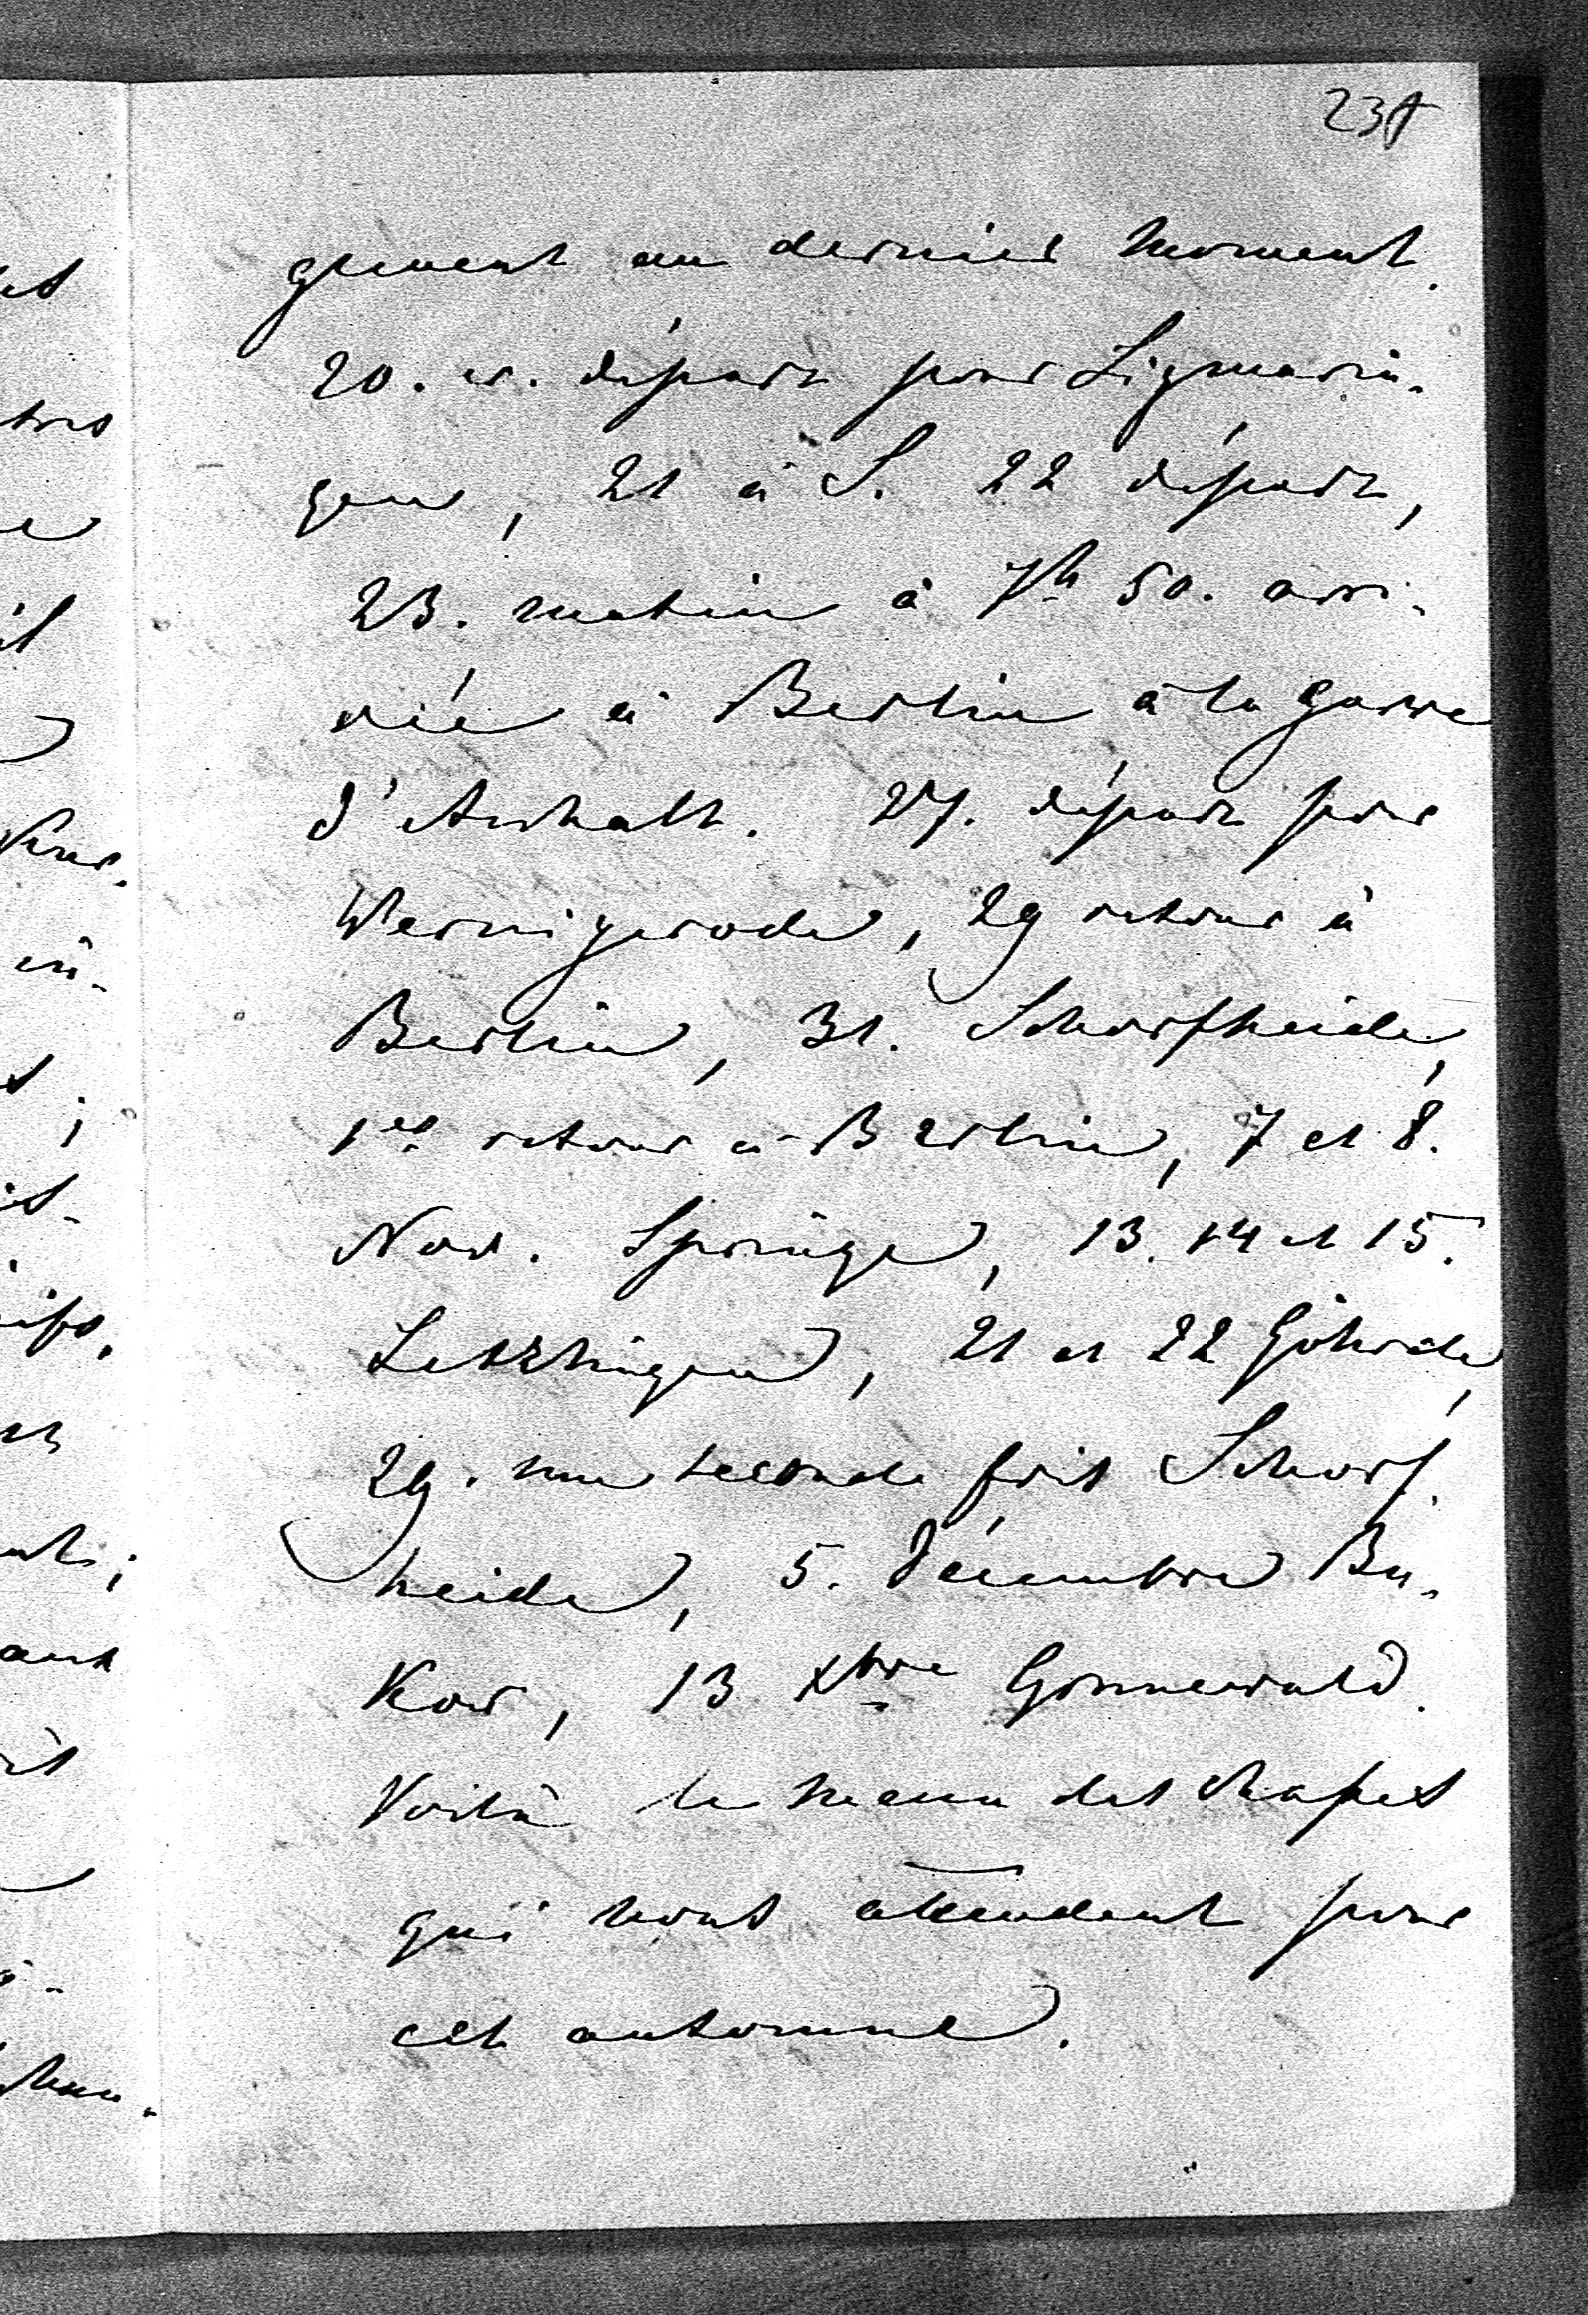 23
gement au dernier moment.
20. cr. départ pour Sigmarin-
gen, 21 à S. 22 départ,
23. matin à 7h 50. arri-
vée à Berlin à la garre
d'Anhalt. 27. départ pour
Wernigerode, 29 retour à
Berlin, 31. Schorfheide,
1er retour à Berlin, 7 et 8.
Nov. Springe, 13. 14 et 15.
Letzlingen, 21 et 22 Göhrde,
29. une seconde fois Schorf-
heide, 5. Décembre Bu-
kow, 13 Xbre Grunewald.
Voilà le menu des chasses
qui nous attendent pour
cet automne.